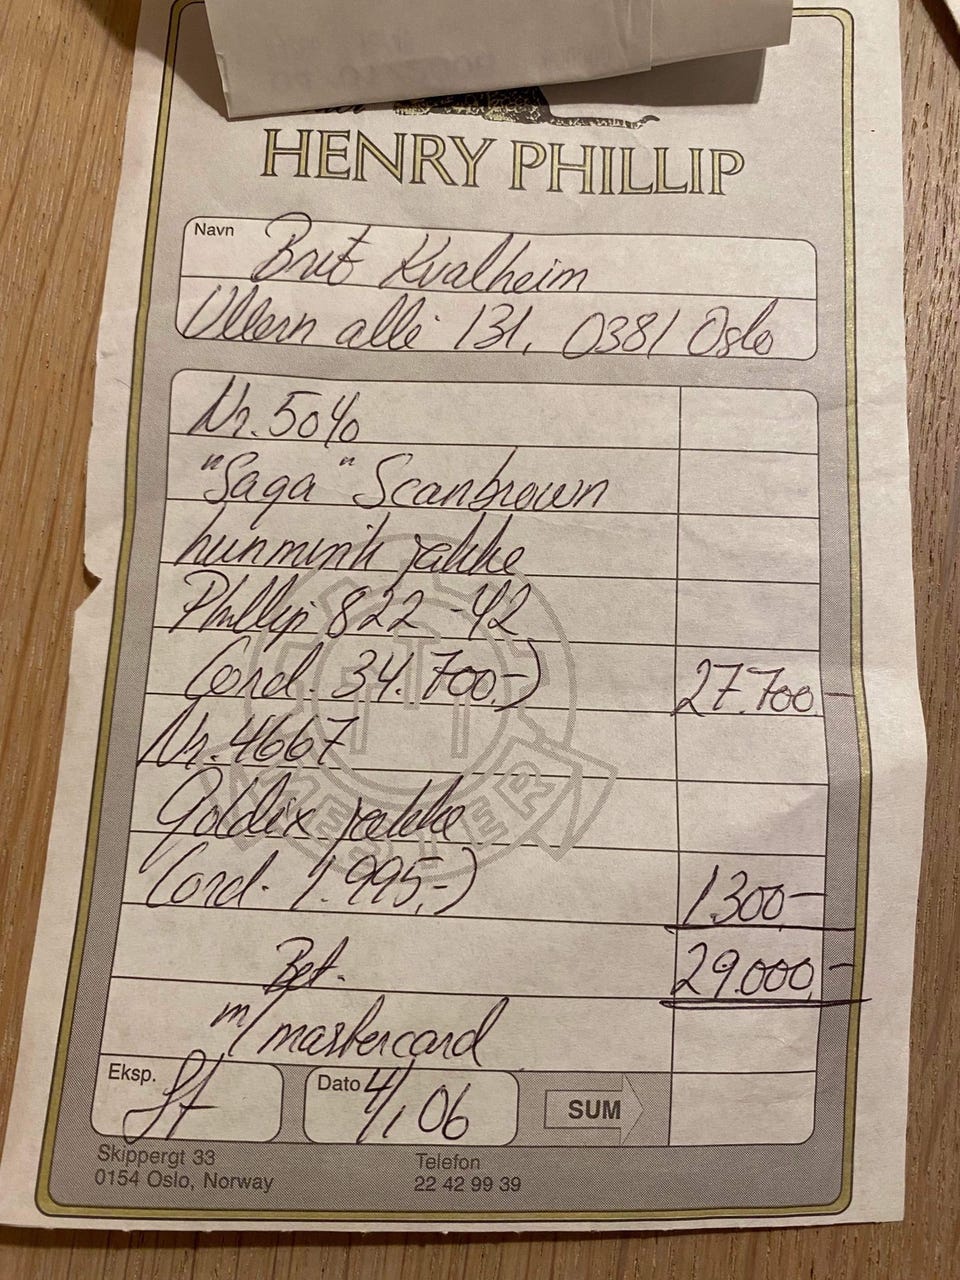 HENRY PHILLIP
Navn
Brit Kvalheim
Ullern allé 131, 0381 Oslo
Nr. 5040
"Saga" Scanbrown
hunmink jakke
Phillip 822-42
(ord. 34.700,-) 27.700,-
Nr. 4667
Goldix jakke
(ord. 1.995,-) 1.300,-
29.000,-
Bet.
m/mastercard
MESTER
Eksp. Dato 4/1 06 SUM
Skippergt 33 Telefon
0154 Oslo, Norway 22 42 99 39